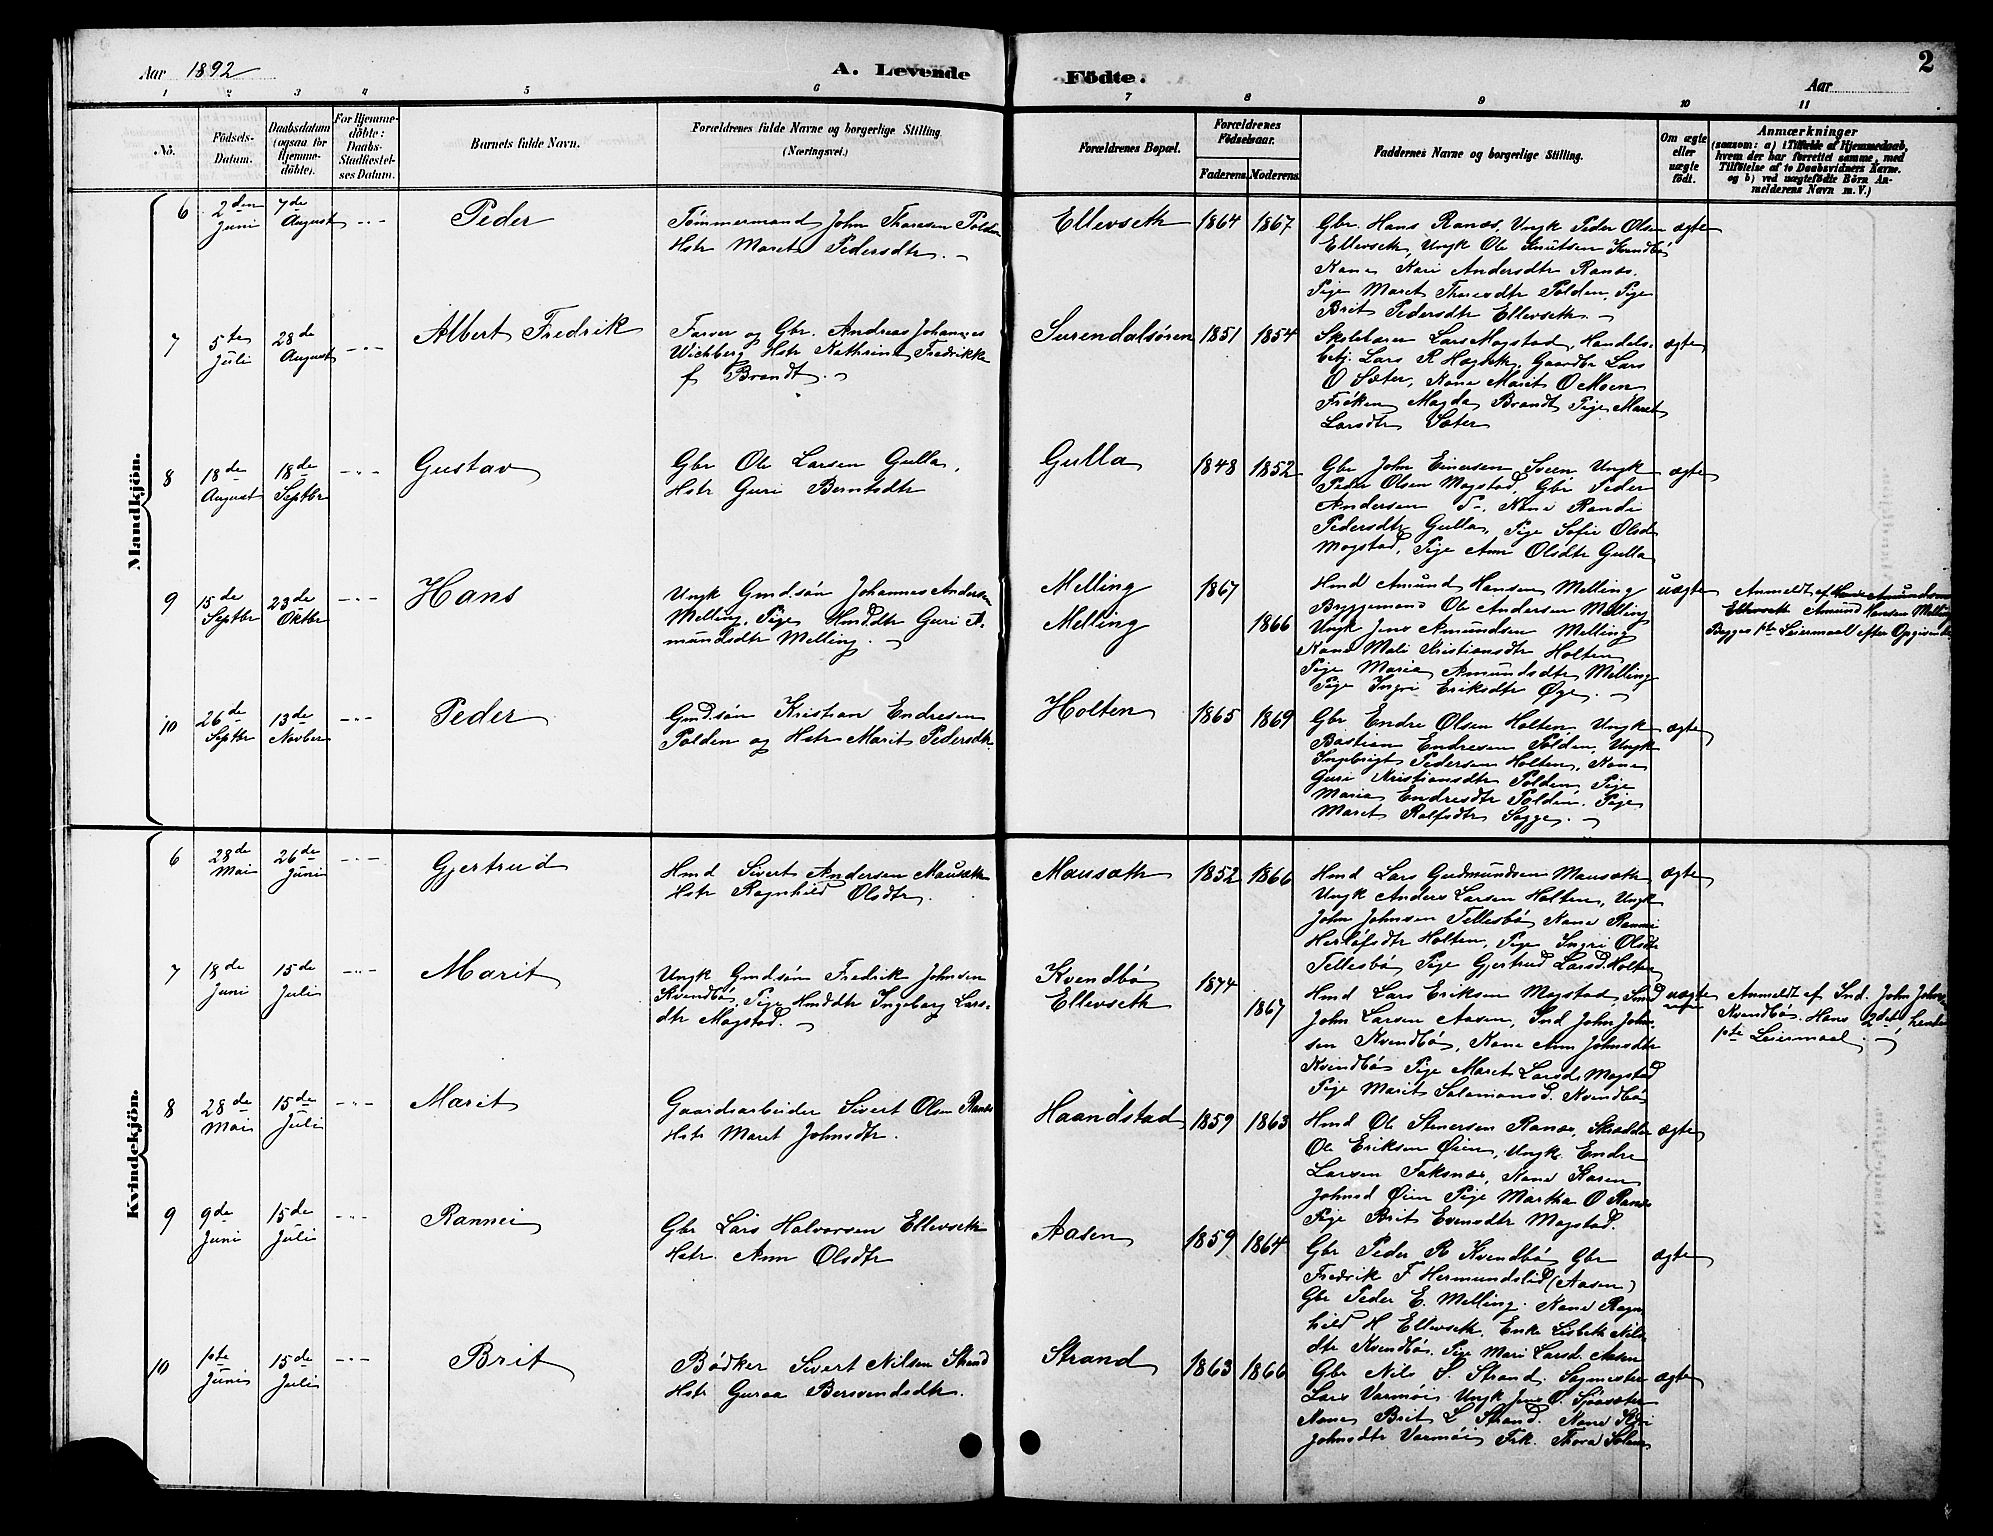 Aar 1892
A. Levende Födte.
Aar
2
1 2 3 4 5 6 7 8 9 10 11
No.
Födsels-
Datum.
Daabsdatum
(ogsaa for
Hjemme-
döbte).
For Hjemme-
döbte:
Daabs-
Stadfæstel-
ses Datum.
Barnets fulde Navn.
Forældrenes fulde Navne og borgerlige Stilling.
(Næringsvei.)
Forældrenes Bopæl.
Forældrenes
Födselsaar.
Faderens. Moderens.
Faddernes Navne og borgerlige Stilling.
Om ægte
eller
uægte
födt.
Anmærkninger
(saasom: a) i Tilfælde af Hjemmedaab,
hvem der har forrettet samme, med
Tilföielse af to Daabsvidners Navne.
og b) ved uægtefödte Börn An-
melderens Navn m. V.)
Mandkjön.
6
2den Juni
7de August
Peder
Tömmermand John Thoresen Polden
Hstr Maret Pedersdtr.
Ellevseth
1864 1867
Gbr Hans Ranæs, Ungk Peder Olsen
Ellevseth, Ungk Ole Knutsen Kvendbö
Kone Kari Andersdtr Ranæs.
Pige Maret Thoresdtr Polden, Pige
Brit Pedersdtr Ellevseth.
ægte
7
5te Juli
28de August
Albert Fredrik
Farver og Gbr. Andreas Johannes
Wichberg Hstr Kathrine Fredrikke
f Brandt.
Surendalsören
1851 1854
Skolelærer Lars Mogstad, Handels-
betj. Lars R Hagbek, Gaardbr Lars
O Sæter, Kone Marit O Moen
Fröken Magda Brandt Pige Maret
Larsdtr Sæter
ægte
8
18de August
18de Septbr
Gustav
Gbr Ole Larsen Gulla,
Hstr Guri Berntsdtr
Gulla
1848 1852
Gbr John Einersen Ungk
Peder Olsen Mogstad, Gbr Peder
Andersen Kone Randi
Pedersdtr Gulla, Pige Sofie Olsd
Mogstad, Pige Ane Olsdtr Gulla
ægte
9
15de Septbr
23de Oktbr
Hans
Ungk Gmd.sön Johannes Andersen
Melling, Pige Hmddtr Guri A-
mundsdtr Melling.
Melling
Melling
1867
1866
Hmd Amund Hansen Melling
Bryggemand Ole Andersen Melling
Ungk Jens Amundsen Melling
Kone Mali Kristiansdtr Holten
Pige Maria Amundsdtr Melling
Pige Ingri Eriksdtr Öye.
uægte
Anmeldt af
Ellevseth Amund Hansen Melling
Begges 1ste Leiermaal efter Opgivende
10
26de Septbr
13de Novber
Peder
Gmdsön Kristian Endresen
Polden og Hstr Marit Pedersdtr
Holten
1865 1869
Gbr Endre Olsen Holten, Ungk
Bastian Endresen Polden, Ungk
Ingebrigt Pedersen Holten, Kone
Guri Kristiansdtr Polden, Pige
Maria Endresdtr Polden, Pige
Maret Rolfsdtr Sogge.
ægte
Kvindekjön.
6
28de Mai
26de Juni
Gjertrud
Hmd Sivert Andersen Mausæth
Hstr Ragnhild Olsdtr.
Mausæth
1852 1866
Hmd Lars Gudmundsen Mausæth
Ungk Anders Larsen Holten, Ungk
John Johnsen Tellesbö Kone Rannei
Herlofsdtr Holten, Pige Ingri Olsdtr
Tellesbö Pige Gjertrud Larsd. Holten
ægte
7
18de Juni
15de Juli
Marit
Ungk Gmdsön Fredrik Johnsen
Kvendbö, Pige Hmddtr Ingeborg Lars-
dtr Mogstad.
Kvendbö
Ellevseth
1874
1867
Hmd Lars Eriksen Mogstad Smd
John Larsen Aasen, Ind John John-
sen Kvendbö, Kone Ann Johnsdtr
Kvendbö Pige Maret Larsd. Mogstad
Pige Marit Salamonsd. Kvendbö
uægte
Anmeldt af Ind. John Johnsen
Kvendbö. Hans 2det, hendes
1ste Leiermaal.
8
28de Mai
15de Juli
Marit
Gaardsarbeider Sivert Olsen Ranæs
Hstr Maret Johnsdtr.
Haandstad
1859 1863
Hmd Ole Stenersen Ranæs, Skrædder
Ole Eriksen Öien, Ungk. Endre
Larsen Faksnæs, Kone Karen
Johnsd Öien Pige Martha O Ranæs
Pige Brit Evensdtr Mogstad.
ægte
9
9de Juni
15de Juli
Rannei
Gbr Lars Halvorsen Ellevseth
Hstr. Ann Olsdtr
Aasen
1859 1864
Gbr Peder R Kvendbö Gbr
Fredrik F Hermundslid (Aasen)
Gbr Peder E. Melling. Kone Ragn-
hild H Ellevseth. Enke Lisbeth Nils-
dtr Kvendbö. Pige Mari Larsd. Aasen
ægte
10
1ste Juni
15de Juli
Brit
Bödker Sivert Nilsen Strand
Hstr Guraa Bersvendsdtr.
Strand
1863 1866
Gbr Nils S. Strand. Sagmester
Lars Varmöi Ungk Jens O. Sjaasæter
Kone Brit L Strand. Kone
Johnsdtr Varmöi Frk. Thora Solem
ægte